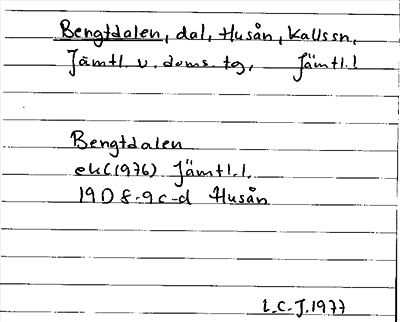 Bengtdalen, dal, Husån, Kallssn,
Jämtl. v. doms. tg, Jämtl. l
Bengtdalen
ek (1976) Jämtl. l.
19D 8-9 c-d Husån
L.C.J. 1977